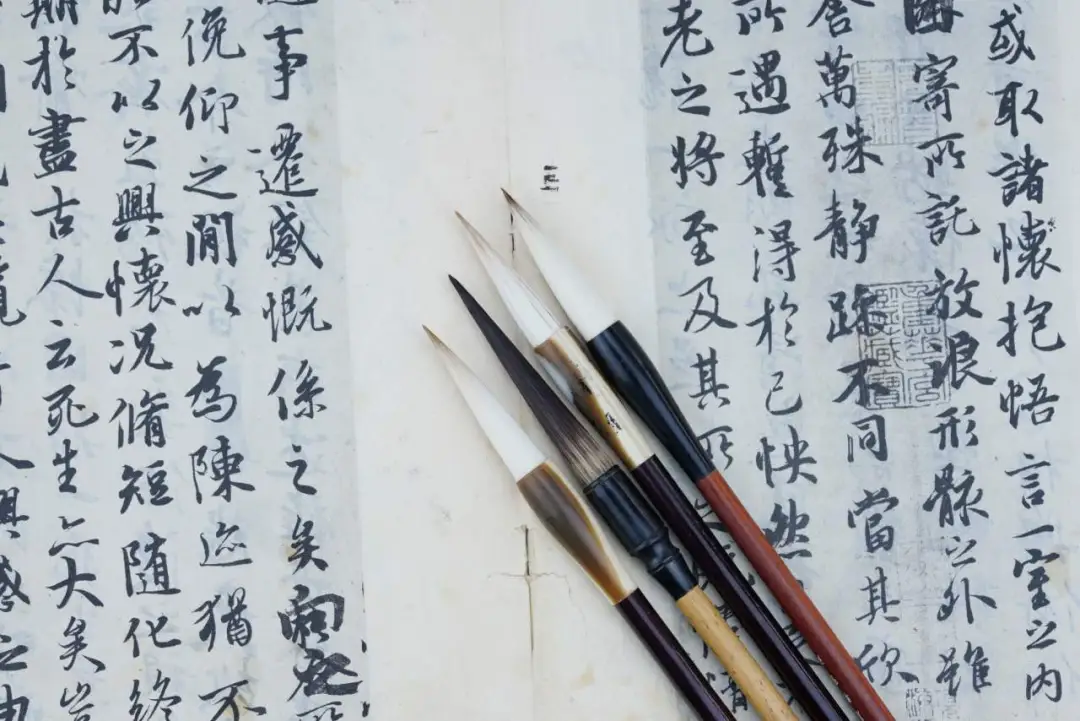 或取諸懷抱悟言一室之內
因寄所託放浪形骸之外雖
舍萬殊靜躁不同當其欣
所遇暫得於己怏然
老之將至及其所情
事遷感慨係之矣向之所
俛仰之間以為陳迹猶不
能不以之興懷況脩短隨化終
期於盡古人云死生亦大矣豈
人興感之由